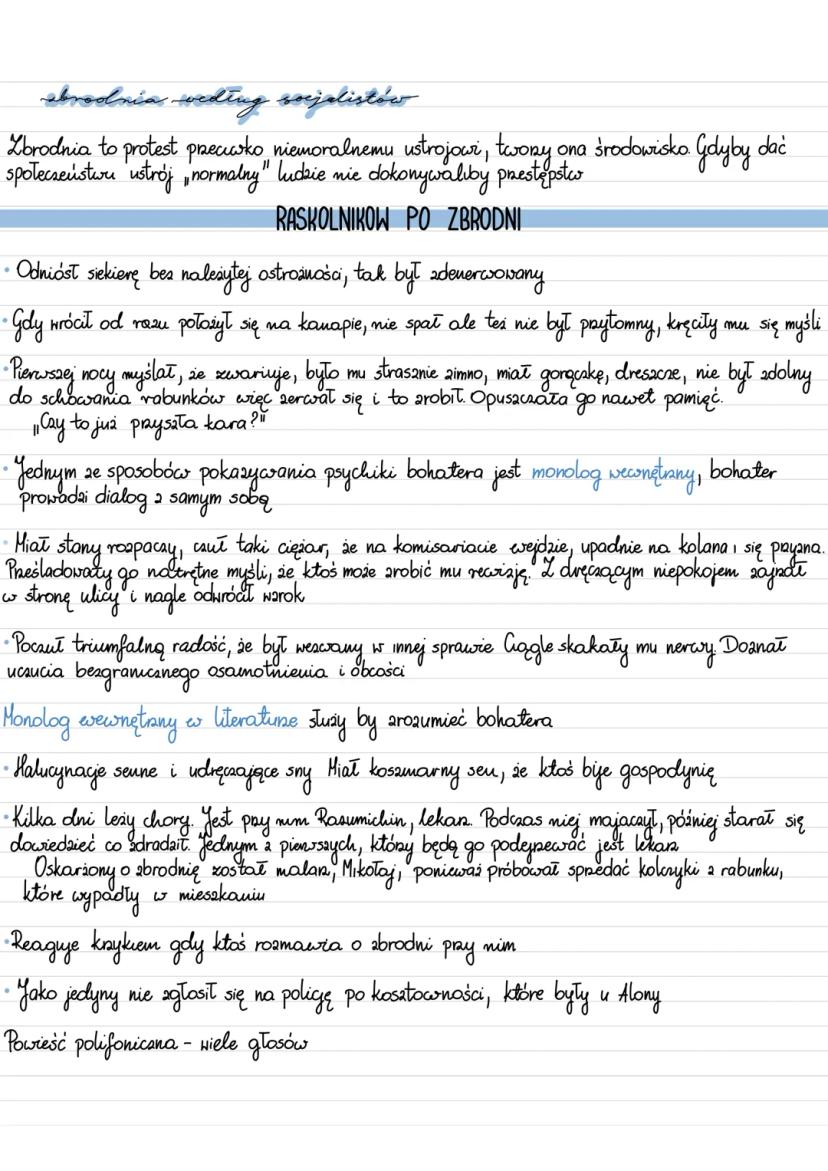 zbrodnia według socjalistów
Zbrodnia to protest przeciwko niemoralnemu ustrojowi, tworzy ona środowisko. Gdyby dać
społeczeństwu ustrój „normalny" ludzie nie dokonywaliby przestępstw
RASKOLNIKOW PO ZBRODNI
• Odniósł siekierę bez należytej ostrożności, tak był zdenerwowany
• Gdy wrócił od razu położył się na kanapie, nie spał ale też nie był przytomny, kręciły mu się myśli
• Pierwszej nocy myślał, że zwariuje, było mu strasznie zimno, miał gorączkę, dreszcze, nie był zdolny
do schowania rabunków więc zerwał się i to zrobił. Opuszczała go nawet pamięć.
„Czy to już przyszła kara?"
• Jednym ze sposobów pokazywania psychiki bohatera jest monolog wewnętrzny, bohater
prowadzi dialog z samym sobą
• Miał stany rozpaczy, czuł taki ciężar, że na komisariacie wejdzie, upadnie na kolana i się przyzna.
Prześladowały go natrętne myśli, że ktoś może zrobić mu rewizję. Z dręczącym niepokojem zajrzał
w stronę ulicy i nagle odwrócił wzrok
• Poczuł triumfalną radość, że był wezwany w innej sprawie Ciągle skakały mu nerwy. Doznał
uczucia bezgranicznego osamotnienia i obcości
Monolog wewnętrzny w literaturze służy by zrozumieć bohatera
• Halucynacje senne i udręczające sny Miał koszmarny sen, że ktoś bije gospodynię
• Kilka dni leży chory. Jest przy nim Razumichin, lekarz. Podczas niej majaczył, później starał się
dowiedzieć co zdradził. Jednym z pierwszych, którzy będą go podejrzewać jest lekarz
Oskarżony o zbrodnię został malarz, Mikołaj, ponieważ próbował sprzedać kolczyki z rabunku,
które wypadły w mieszkaniu
• Reaguje krzykiem gdy ktoś rozmawia o zbrodni przy nim
• Jako jedyny nie zgłosił się na policję po kosztowności, które były u Alony
Powieść polifoniczna - wiele głosów